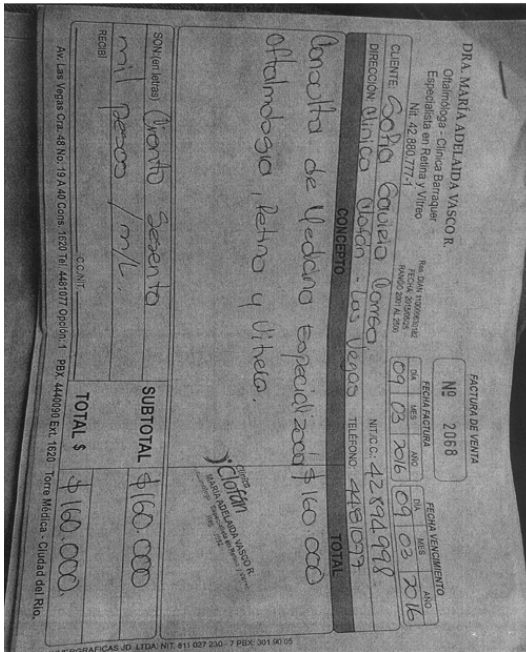 DRA. MARÍA ADELAIDA VASCO R.
Oftalmóloga - Clínica Barraquer
Especialista en Retina y Vítreo
Nit. 42.880.777-1
FACTURA DE VENTA
Nº 2068
FECHA FACTURA
DÍA MES AÑO
09 03 2016
FECHA VENCIMIENTO
DÍA MES AÑO
09 03 2016
CLIENTE: Sofia Gaviria Correa
NIT/C.C.: 42.894.998
DIRECCIÓN: Clinica Clofan - Las Vegas
TELÉFONO: 4481077
CONCEPTO TOTAL
Consulta de Medicina Especializada $160.000
Oftalmologia, Retina y Vitreo.
Clínica
Clofán
MARIA ADELAIDA VASCO R.
SON (en letras) Ciento Sesenta
mil pesos /m/L.
SUBTOTAL $160.000
RECIBÍ
C.C./NIT.
TOTAL $ $160.000.
Av. Las Vegas Cra. 48 No. 19 A 40 Cons. 1620 Tel. 4481077 Opción: 1 PBX. 4440090 Ext. 1620 Torre Médica - Ciudad del Río.
GRAFICAS JD. LTDA. NIT. 811 027 230 - 7 PBX: 301 90 05